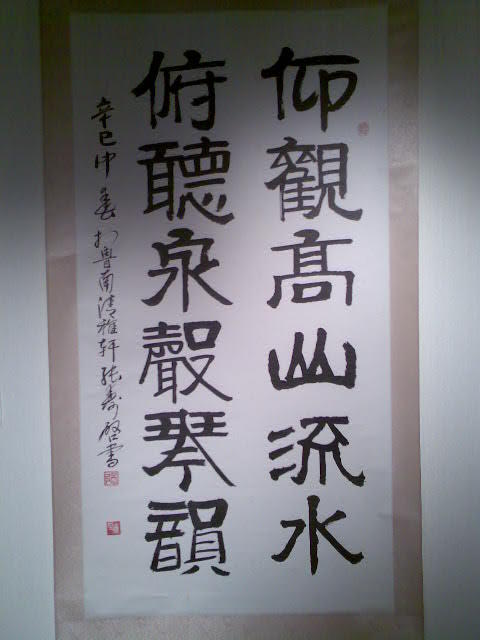 仰觀高山流水
俯聽泉聲琴韻
辛巳中春於魯南清雅軒張壽啓書